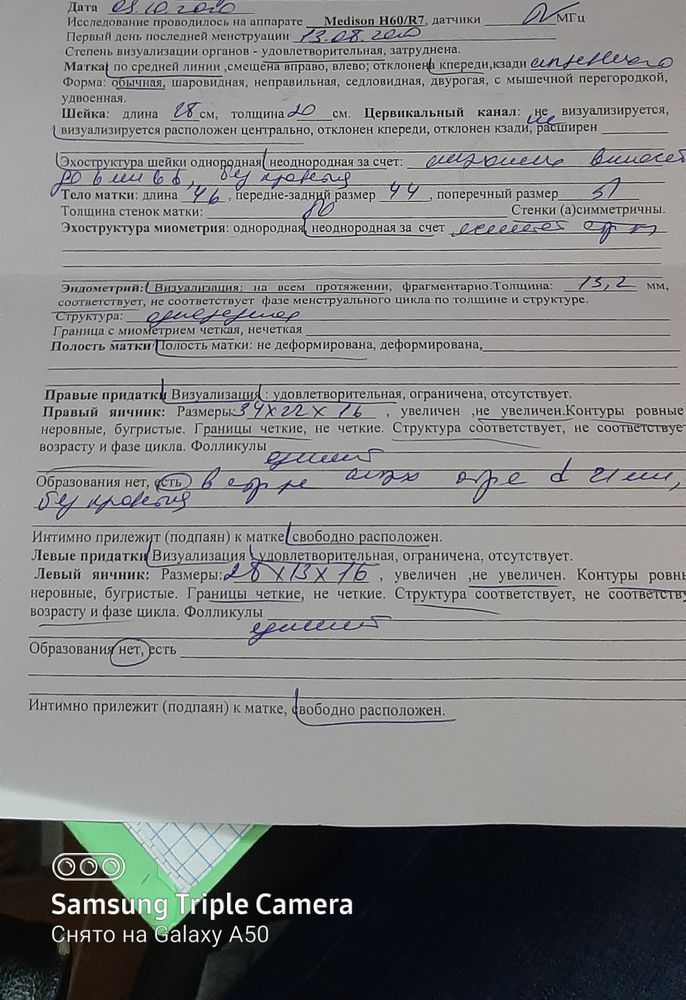 Дата 03.10.2020
Исследование проводилось на аппарате Medison H60/R7, датчики МГц
Первый день последней менструации 13.08.2020
Степень визуализации органов - удовлетворительная, затруднена.
Матка: по средней линии ,смещена вправо, влево; отклонена кпереди,кзади
Форма: обычная, шаровидная, неправильная, седловидная, двурогая, с мышечной перегородкой,
удвоенная.
Шейка: длина 28 см, толщина 20 см. Цервикальный канал: не визуализируется,
визуализируется расположен центрально, отклонен кпереди, отклонен кзади, не расширен
Эхоструктура шейки однородная неоднородная за счет:
Тело матки: длина 46 , передне-задний размер 44 , поперечный размер 51
Толщина стенок матки: Стенки (а)симметричны.
Эхоструктура миометрия: однородная, неоднородная за счет
Эндометрий: Визуализация: на всем протяжении, фрагментарно.Толщина: 13,2 мм,
соответствует, не соответствует фазе менструального цикла по толщине и структуре.
Структура:
Граница с миометрием четкая, нечеткая
Полость матки Полость матки: не деформирована, деформирована,
Правые придатки Визуализация : удовлетворительная, ограничена, отсутствует.
Правый яичник: Размеры: 34х22х16 , увеличен ,не увеличен.Контуры ровные
неровные, бугристые. Границы четкие, не четкие. Структура соответствует, не соответствуе
возрасту и фазе цикла. Фолликулы
Образования нет, есть в
без кровотока
Интимно прилежит (подпаян) к матке, свободно расположен.
Левые придатки Визуализация удовлетворительная, ограничена, отсутствует.
Левый яичник: Размеры: 28х13х16 , увеличен ,не увеличен. Контуры ровны
неровные, бугристые. Границы четкие, не четкие. Структура соответствует, не соответству
возрасту и фазе цикла. Фолликулы
Образования нет, есть
Интимно прилежит (подпаян) к матке, свободно расположен.
Samsung Triple Camera
Снято на Galaxy A50